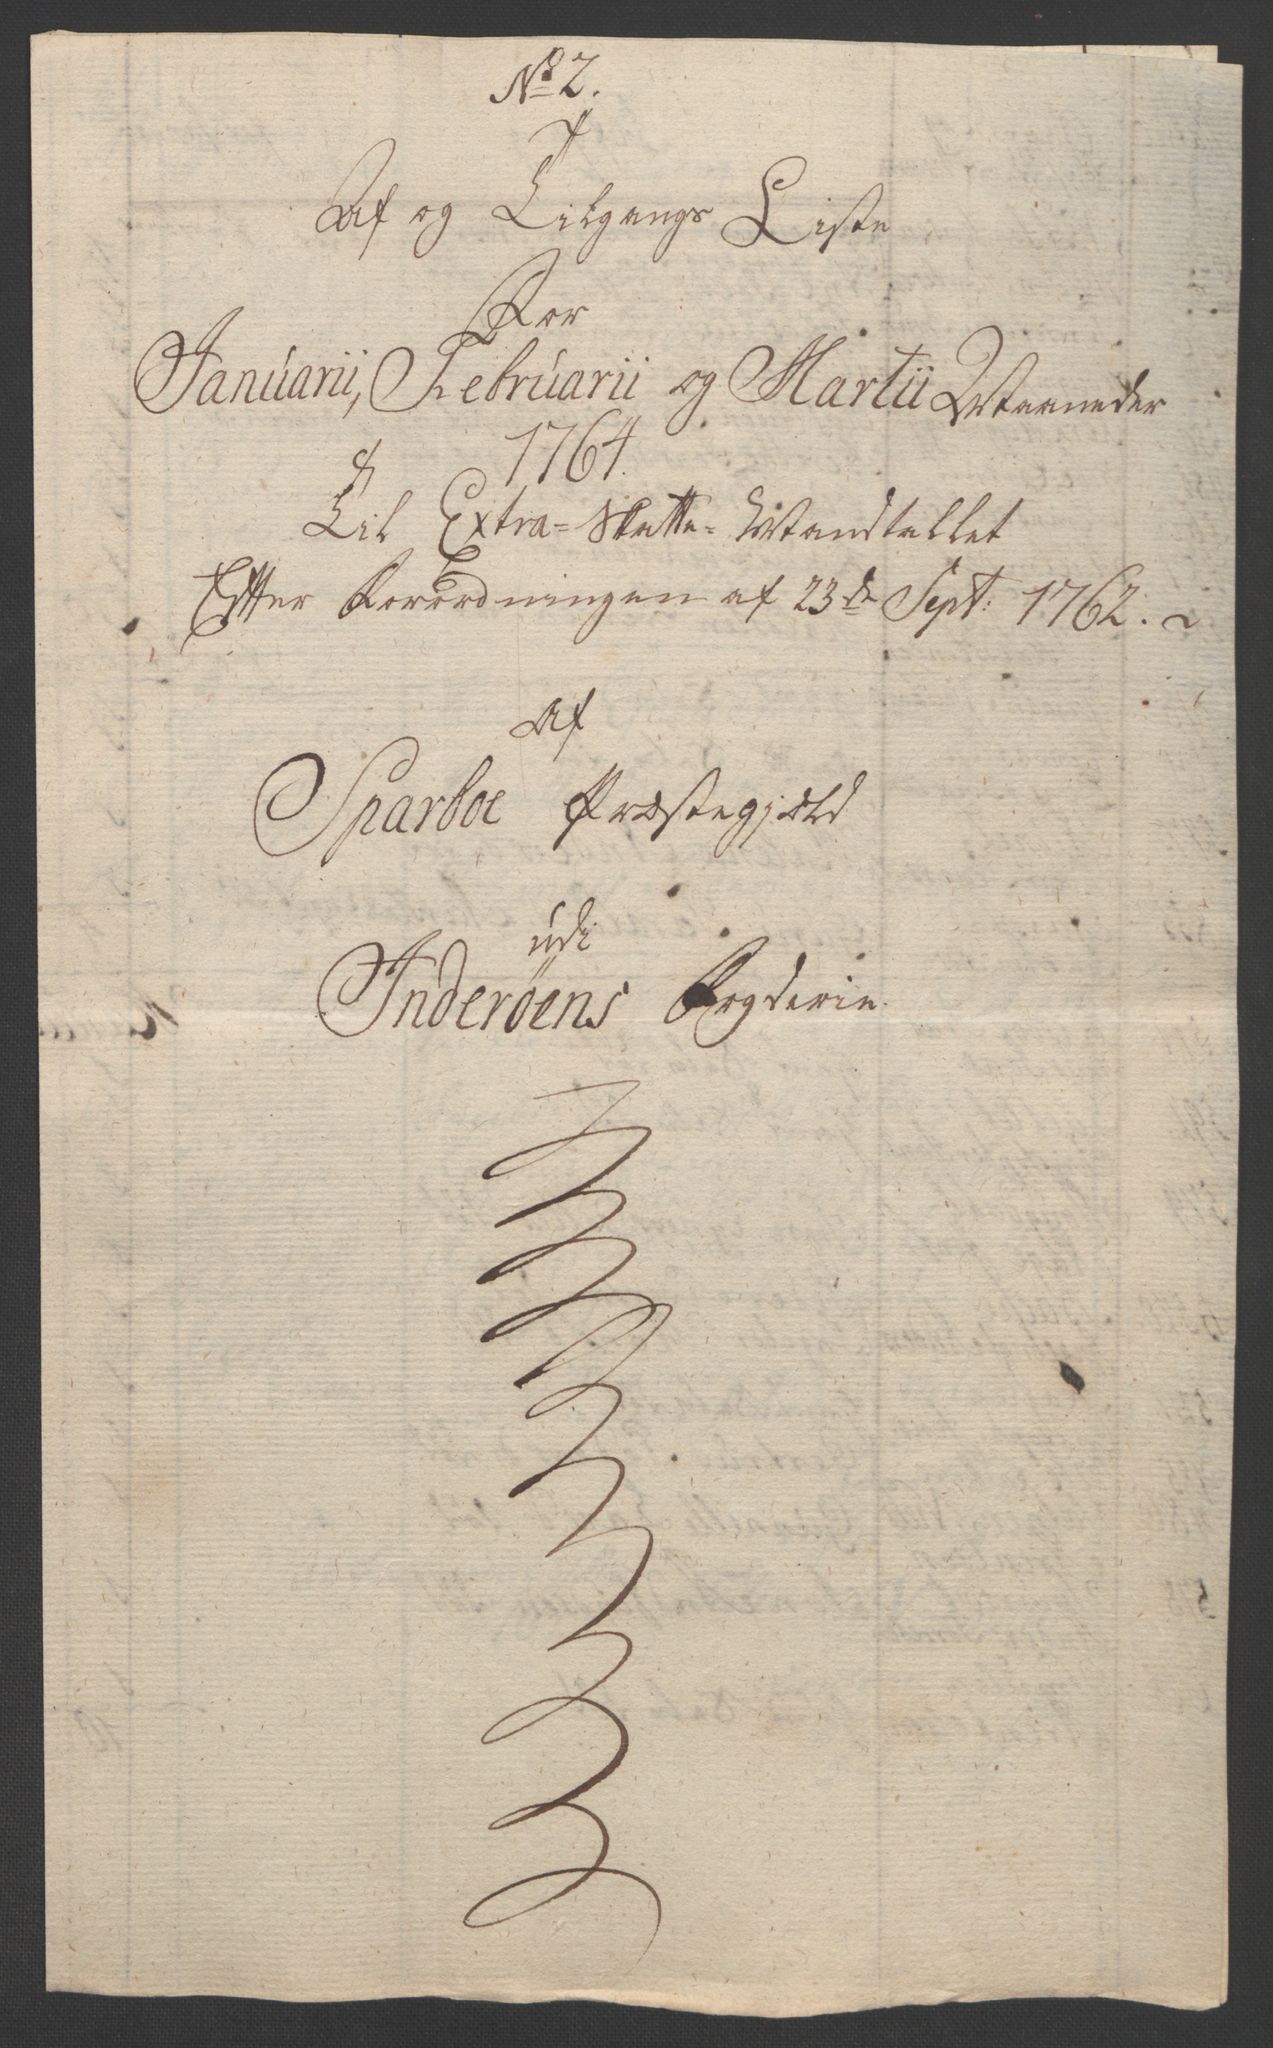 No 2.
Af og Tilgangs Liste
For
Januarii, Februarii og Martii Maaneder
1764
Til Extra=Skatte=Mandtallet
Efter Forordningen af 23de Sept: 1762.
Af
Sparboe Præstegjæld
udi
Inderöens Fogderie